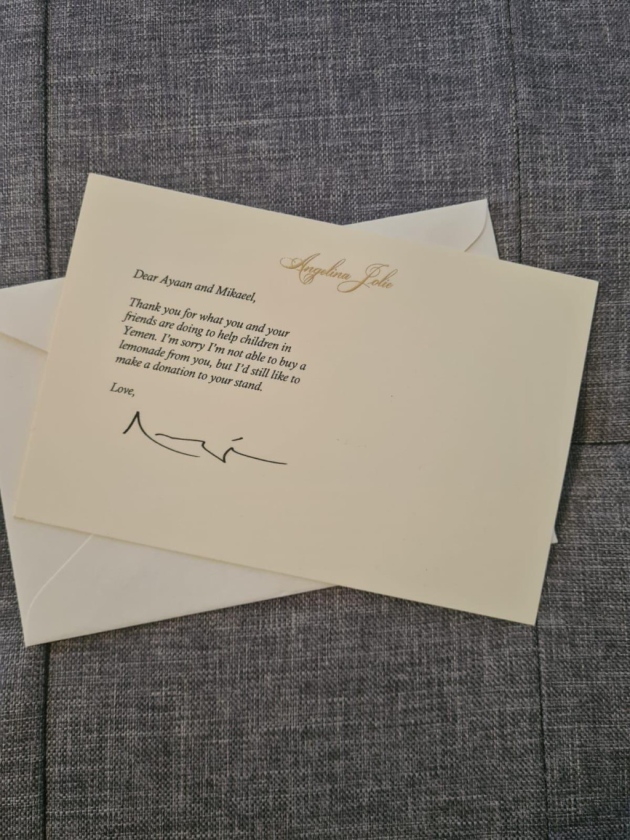 Angelina Jolie
Dear Ayaan and Mikaeel,
Thank you for what you and your
friends are doing to help children in
Yemen. I'm sorry I'm not able to buy a
lemonade from you, but I'd still like to
make a donation to your stand.
Love,